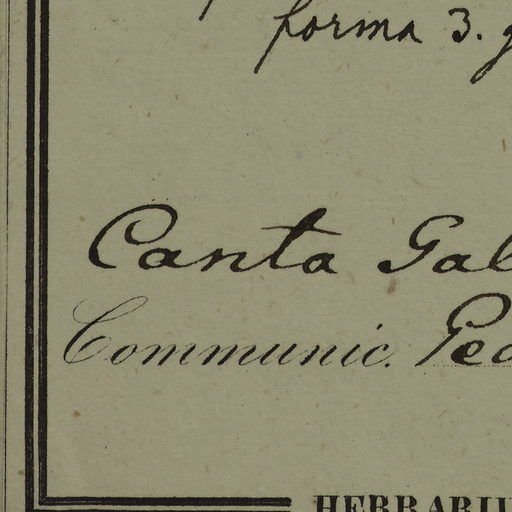 forma 3.
Canta Gal
Communic. Pec
HERBARIU